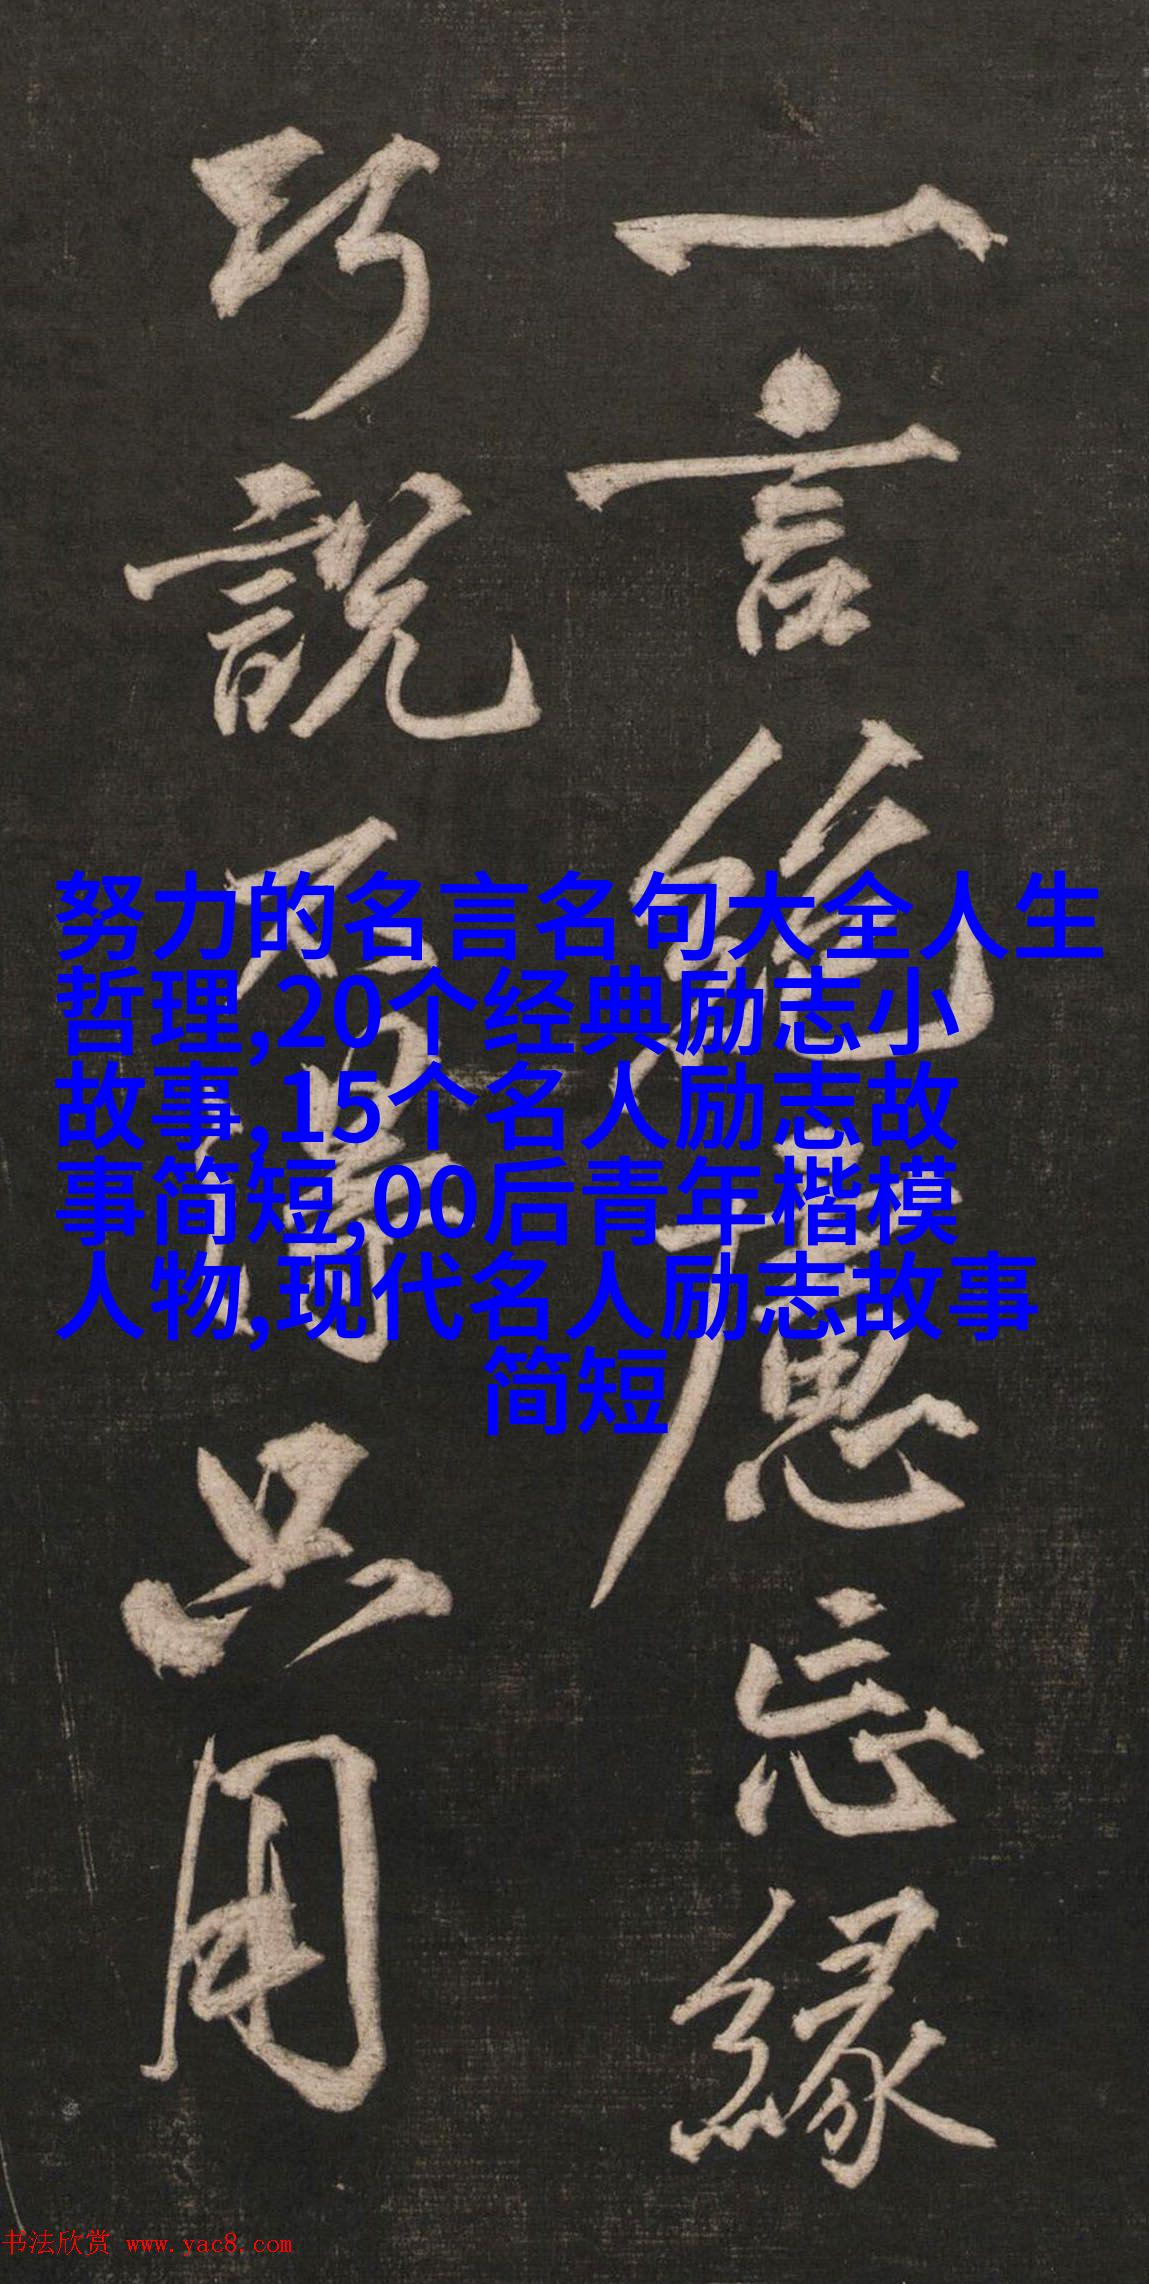 一言絶慮忘緣
巧說不得只用
努力的名言名句大全人生
哲理,20个经典励志小
故事,15个名人励志故
事简短,00后青年楷模
人物,现代名人励志故事
简短
书法欣赏 www.yac8.com